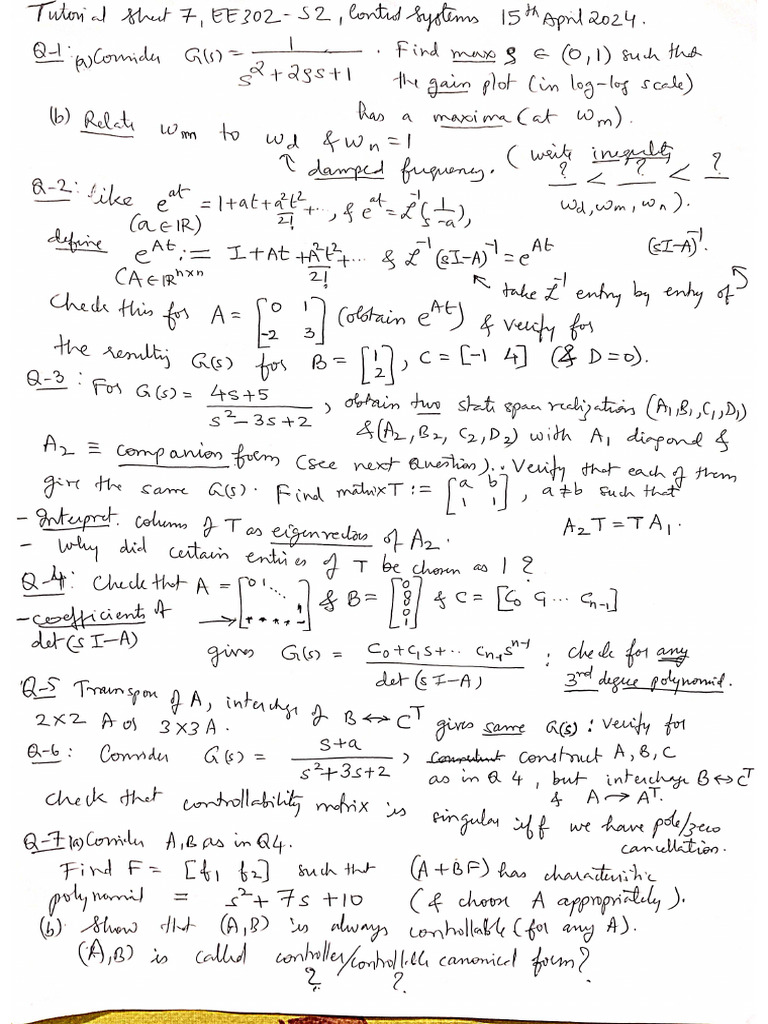 Tutorial Sheet 7, EE302-S2, Control Systems 15th April 2024.
Q-1: (a) Consider G(s) = 1 / (s² + 2ζs + 1). Find max ζ ∈ (0,1) such that
the gain plot (in log-log scale)
has a maxima (at ωm).
(b) Relate ωm to ωd & ωn = 1
↑ damped frequency. (write inequality
? < ? < ?
ωd, ωm, ωn).
Q-2: Like e^{at} = 1 + at + a²t²/2! + ..., & e^{at} = L⁻¹(1/(s-a)),
(a ∈ IR)
define e^{At} := I + At + A²t²/2! + ... & L⁻¹(sI-A)⁻¹ = e^{At} (sI-A)⁻¹.
(A ∈ IR^{n×n}) ↖ take L⁻¹ entry by entry of ↗
Check this for A = [0 1; -2 3] (obtain e^{At}) & verify for
the resulting G(s) for B = [1; 2], C = [-1 4] (& D = 0).
Q-3: For G(s) = (4s+5) / (s² - 3s + 2), obtain two state space realizations (A₁, B₁, C₁, D₁)
& (A₂, B₂, C₂, D₂) with A₁ diagonal &
A₂ ≡ companion form (see next Question). Verify that each of them
give the same G(s). Find matrix T := [a b; 1 1], a≠b such that
A₂T = TA₁.
- Interpret columns of T as eigenvectors of A₂.
- Why did certain entries of T be chosen as 1?
Q-4: Check that A = [0 1 ⋱ 1; * * * * *] & B = [0; 0; 0; 0; 1] & C = [c₀ c₁ ... c_{n-1}]
- coefficients of →
det(sI-A)
gives G(s) = (c₀ + c₁s + ... c_{n-1}s^{n-1}) / det(sI-A) : check for any
3rd degree polynomial.
Q-5 Transpose of A, interchange of B ↔ Cᵀ gives same G(s): Verify for
2×2 A or 3×3 A.
Q-6: Consider G(s) = (s+a) / (s²+3s+2), construct A, B, C
as in Q 4, but interchange B ↔ Cᵀ
& A → Aᵀ.
check that controllability matrix is singular iff we have pole/zero
cancellation.
Q-7 (a) Consider A, B as in Q4.
Find F = [f₁ f₂] such that (A+BF) has characteristic
polynomial = s² + 7s + 10 (& choose A appropriately).
(b) Show that (A,B) is always controllable (for any A).
(A,B) is called controller/controllable canonical form?
? ?